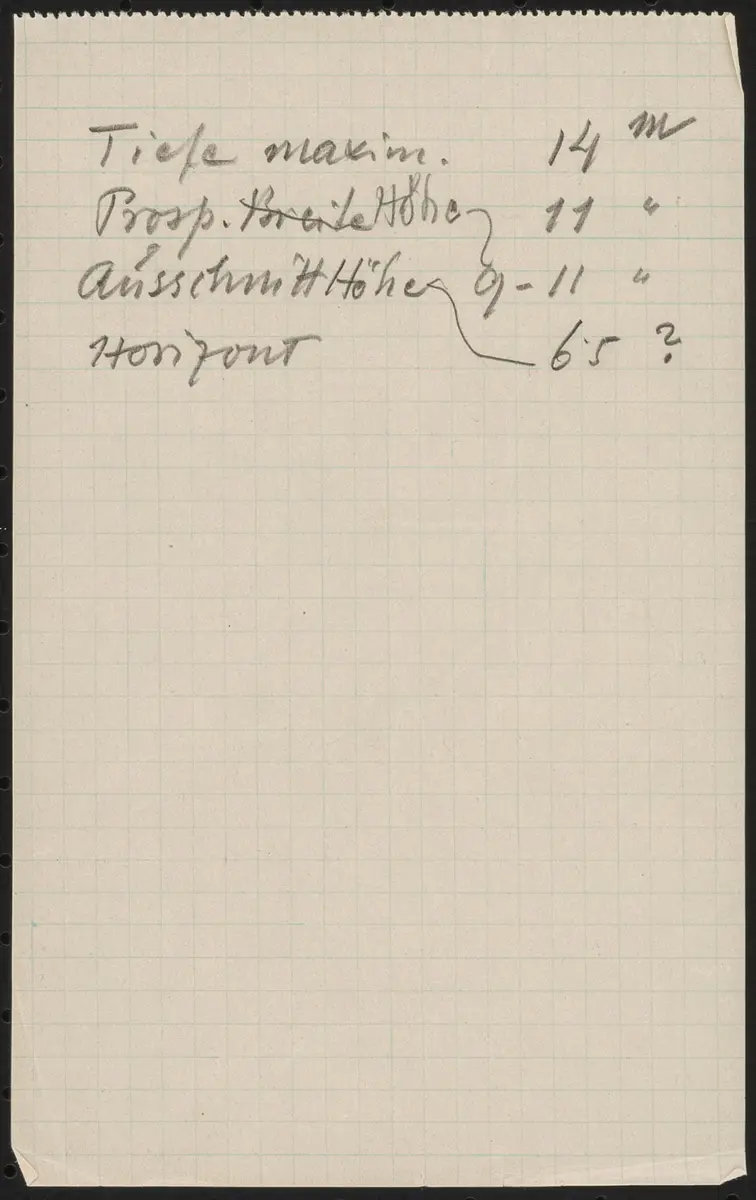 Tiefe maxim. 14 m
Prosp. Breite Höhe 11 "
Ausschnitt Höhe 9-11 "
Horizont 6.5 ?